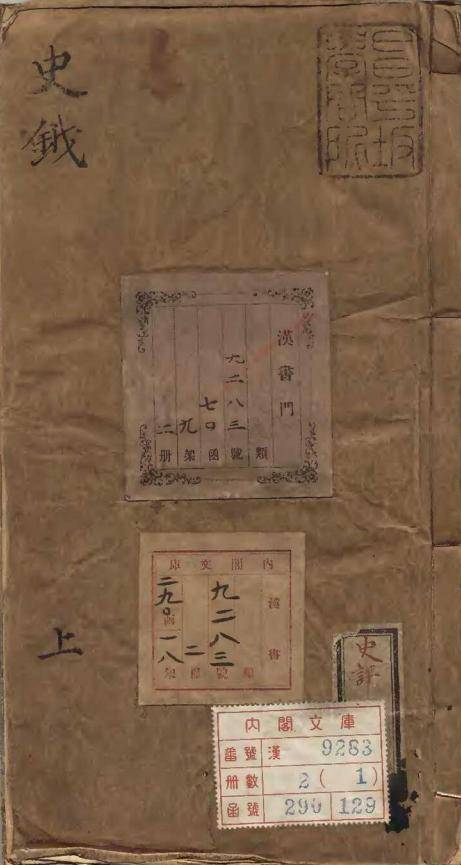 昌平坂
學問所
史鉞
上
漢書門
類
九二八三號
七〇函
九架
二册
內閣文庫
漢書
類
九二八三號
二冊
二九〇函
一八架
史評
内閣文庫
番號 漢 9283
册數 2 ( 1 )
函號 290 129